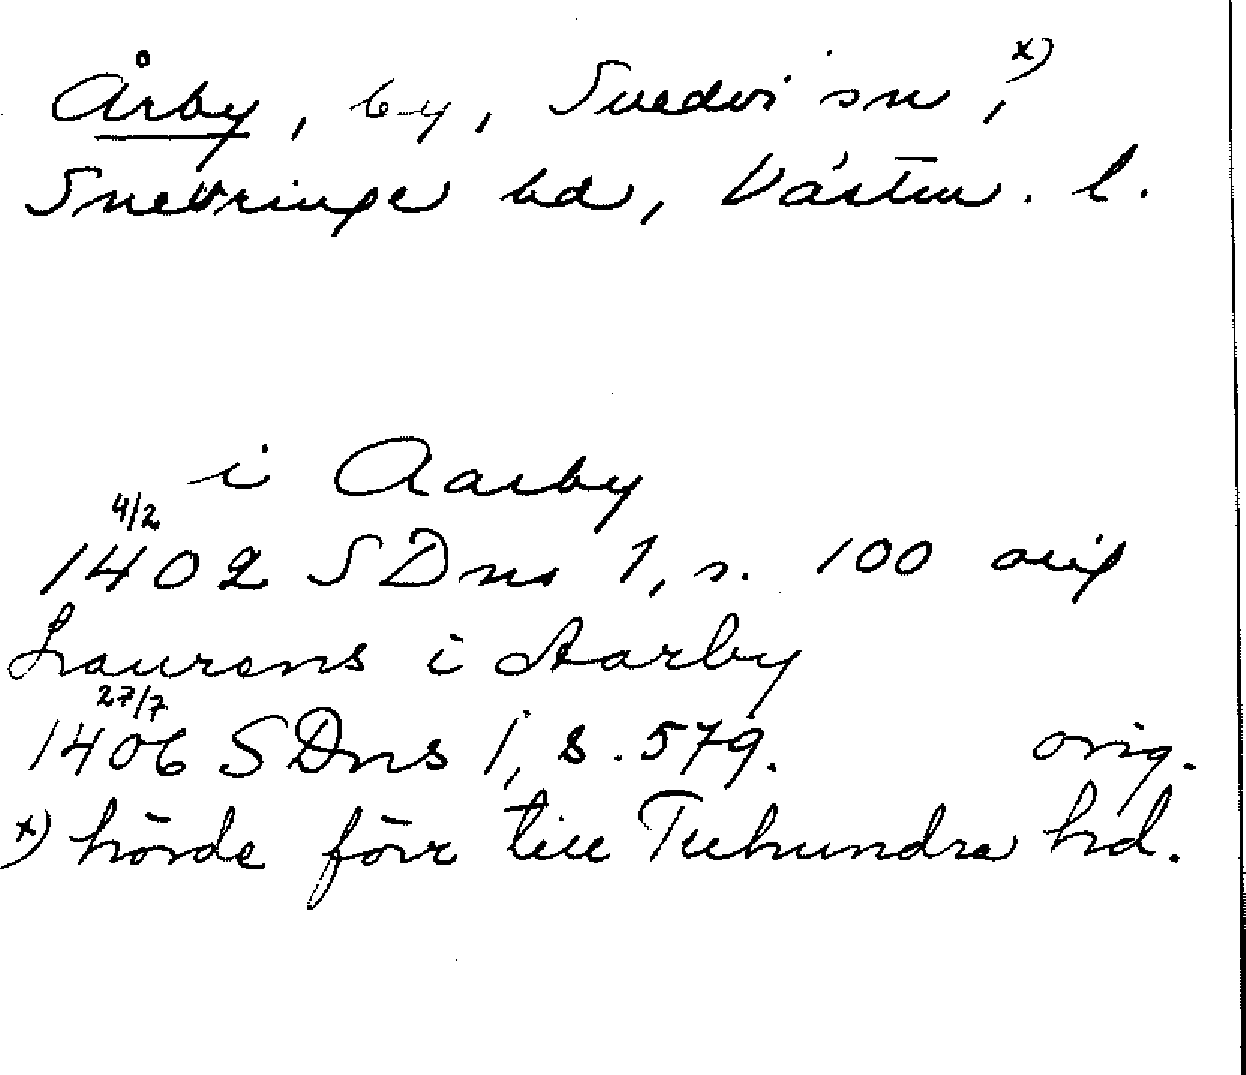 Årby, by, Svedvi sn, x)
Snevringe hd, Västm. l.
i Aarby
4/2
1402 SDns 1, s. 100 orig
Laurens i Aarby
27/7
1406 SDns 1, s. 579. orig.
x) hörde förr till Tuhundra hd.